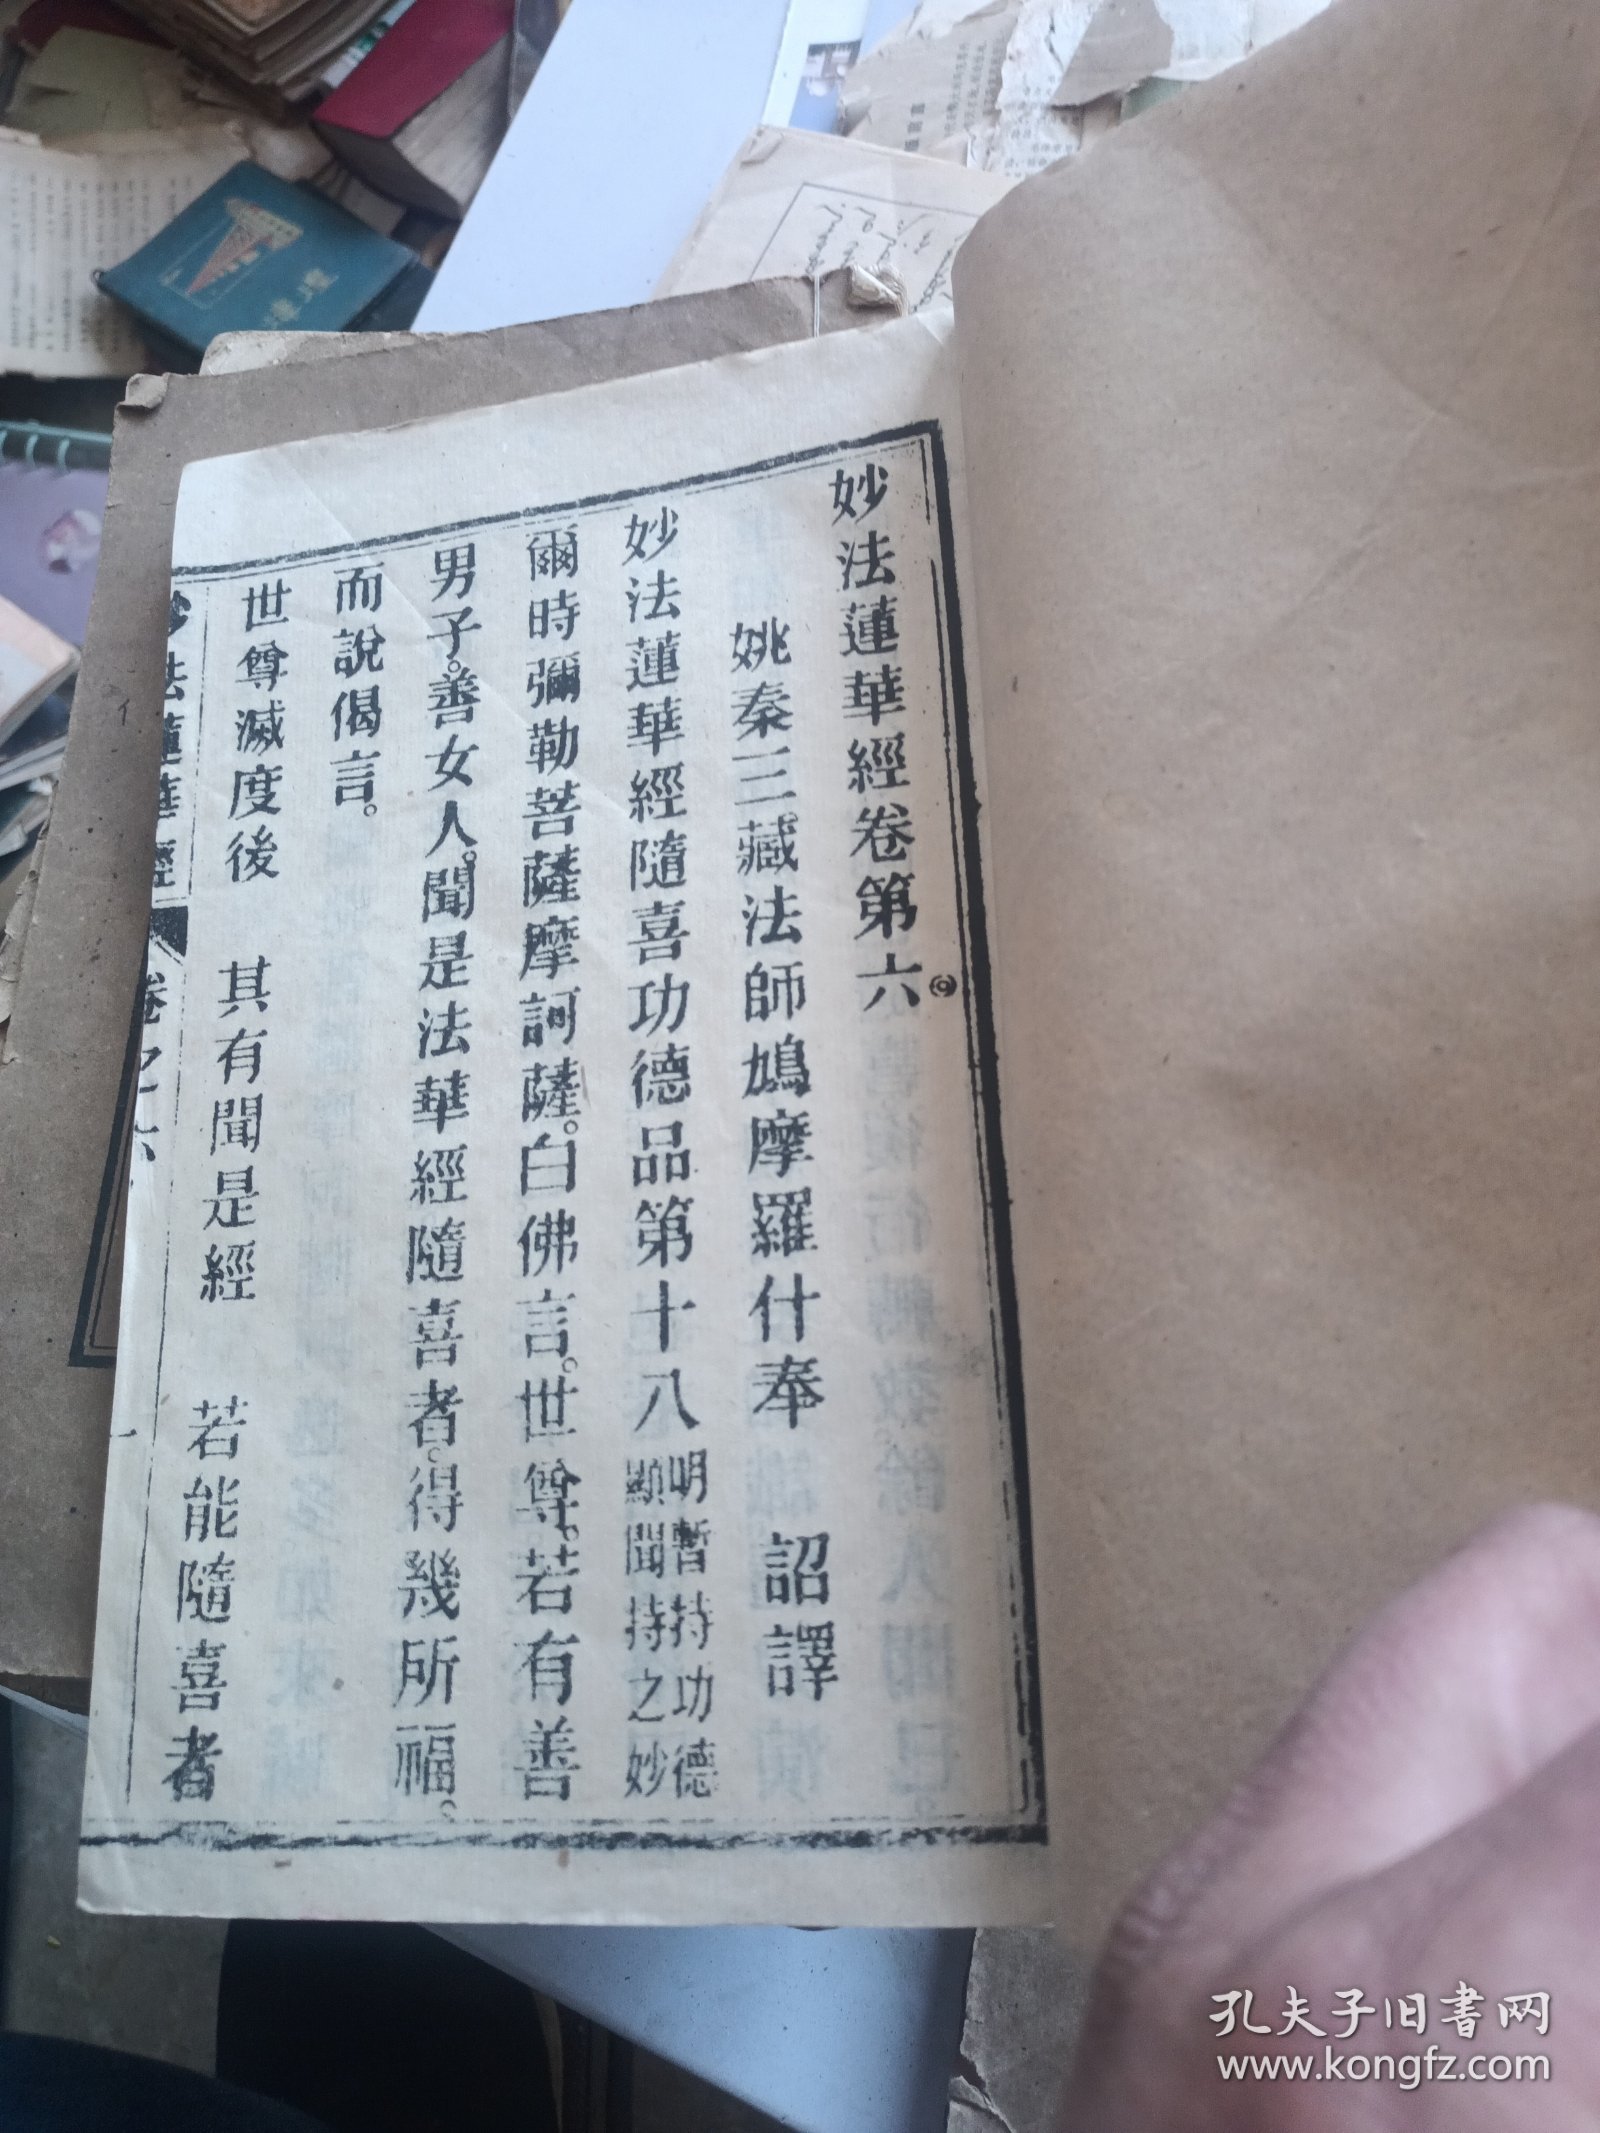 妙法蓮華經卷第六
姚秦三藏法師鳩摩羅什奉 詔譯
妙法蓮華經隨喜功德品第十八 明暫持功德
顯聞持之妙
爾時彌勒菩薩摩訶薩。白佛言。世尊。若有善
男子。善女人。聞是法華經隨喜者。得幾所福。
而說偈言。
世尊滅度後 其有聞是經 若能隨喜者
妙法蓮華經 卷之六
一
孔夫子旧书网
www.kongfz.com